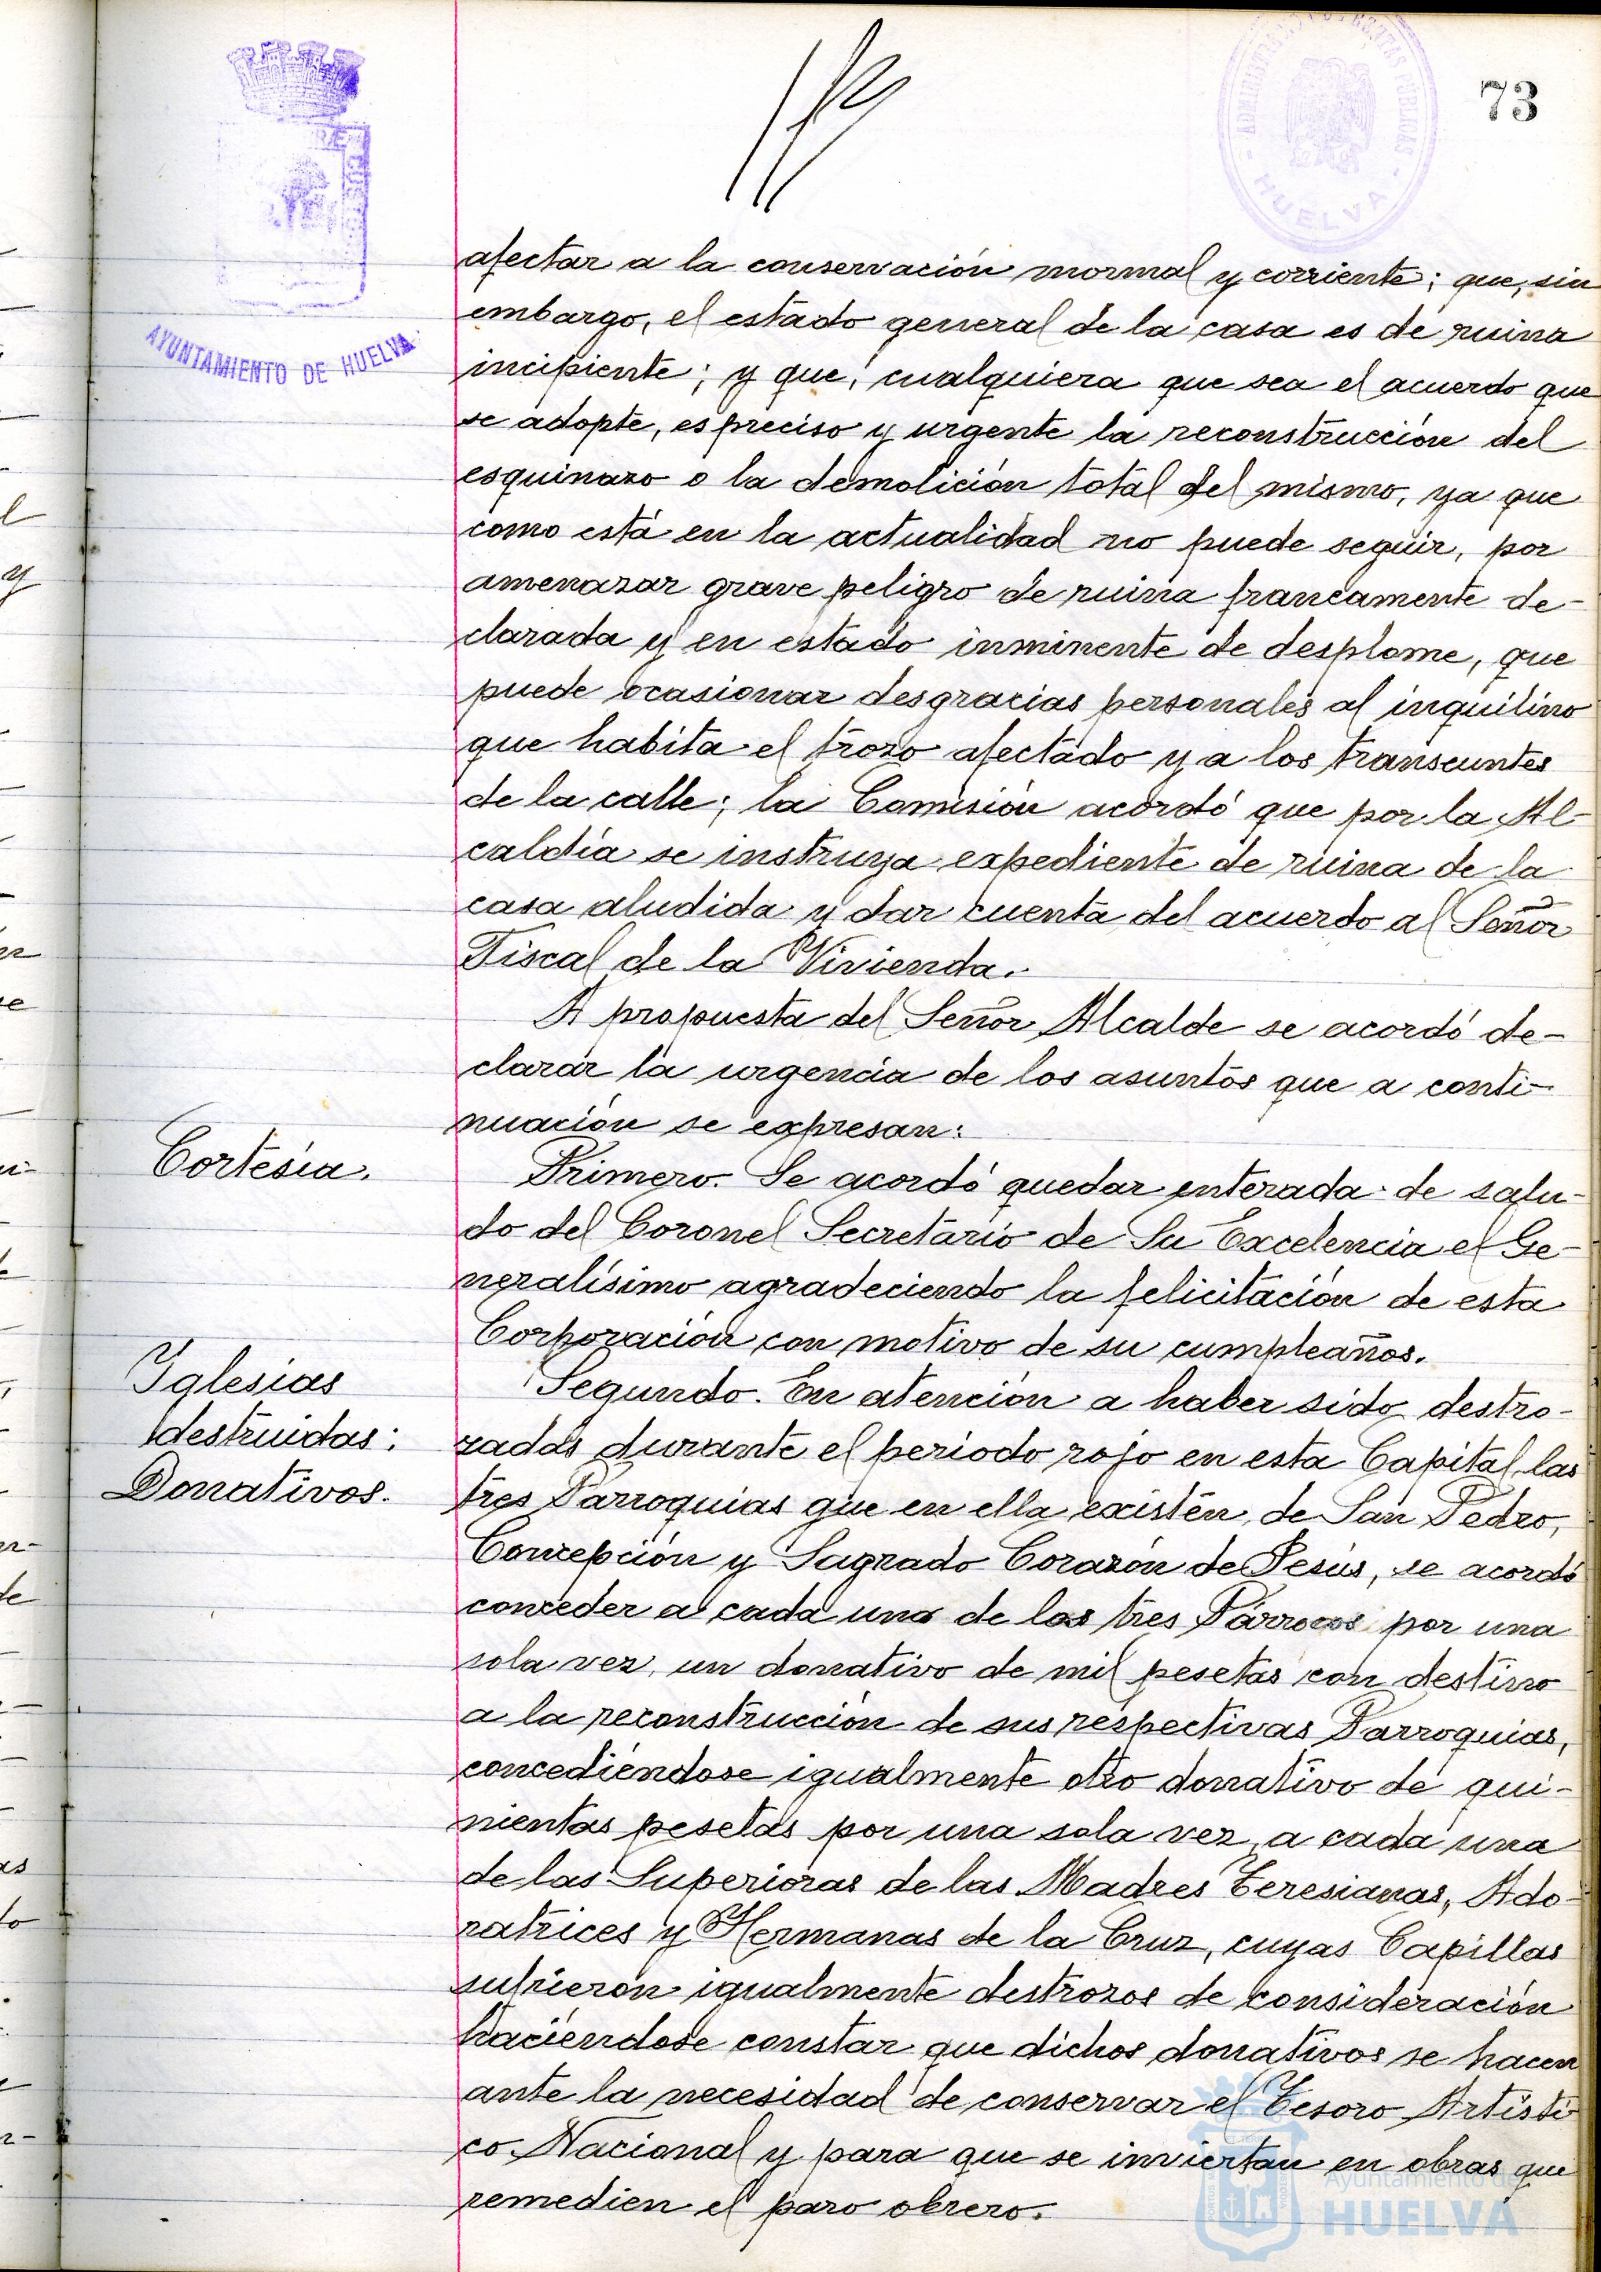 73
AYUNTAMIENTO DE HUELVA
HUELVA
afectar a la conservación normal y corriente; que, sin
embargo, el estado general de la casa es de ruina
incipiente; y que, cualquiera que sea el acuerdo que
se adopte, es preciso y urgente la reconstrucción del
esquinazo o la demolición total del mismo, ya que
como está en la actualidad no puede seguir, por
amenazar grave peligro de ruina francamente de-
clarada y en estado inminente de desplome, que
puede ocasionar desgracias personales al inquilino
que habita el trozo afectado y a los transeuntes
de la calle; la Comisión acordó que por la Al-
caldía se instruya expediente de ruina de la
casa aludida y dar cuenta del acuerdo al Señor
Fiscal de la Vivienda.
A propuesta del Señor Alcalde se acordó de-
clarar la urgencia de los asuntos que a conti-
nuación se expresan:
Cortesía.
Primero. Se acordó quedar enterada de salu-
do del Coronel Secretario de Su Excelencia el Ge-
neralísimo agradeciendo la felicitación de esta
Corporación con motivo de su cumpleaños.
Iglesias
destruidas:
Donativos.
Segundo. En atención a haber sido destro-
zadas durante el periodo rojo en esta Capital las
tres Parroquias que en ella existen, de San Pedro,
Concepción y Sagrado Corazón de Jesús, se acordó
conceder a cada uno de los tres Párrocos por una
sola vez, un donativo de mil pesetas con destino
a la reconstrucción de sus respectivas Parroquias,
concediéndose igualmente otro donativo de qui-
nientas pesetas por una sola vez, a cada una
de las Superioras de las Madres Teresianas, Ado-
ratrices y Hermanas de la Cruz, cuyas Capillas
sufrieron igualmente destrozos de consideración
haciéndose constar que dichos donativos se hacen
ante la necesidad de conservar el Tesoro Artísti-
co Nacional y para que se inviertan en obras que
remedien el paro obrero.
Ayuntamiento de
HUELVA